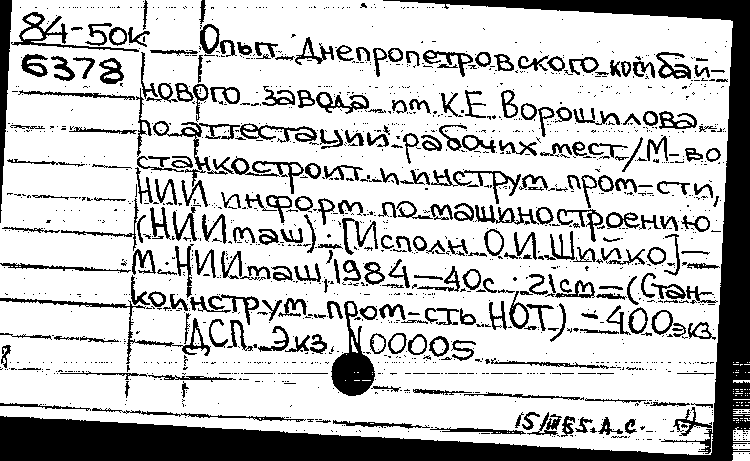 84-50к
6378
Опыт Днепропетровского комбай-
нового завода им. К.Е. Ворошилова
по аттестации рабочих мест/М-во
станкостроит. и инструм. пром-сти,
НИИ информ. по машиностроению
(НИИмаш). [Исполн. О.И. Шийко]. —
М.: НИИмаш, 1984. — 40с.; 21см — (Стан-
коинструм. пром-сть. НОТ). — 400экз.
ДСП. Экз. N00005
8
15/III 85. А.С.